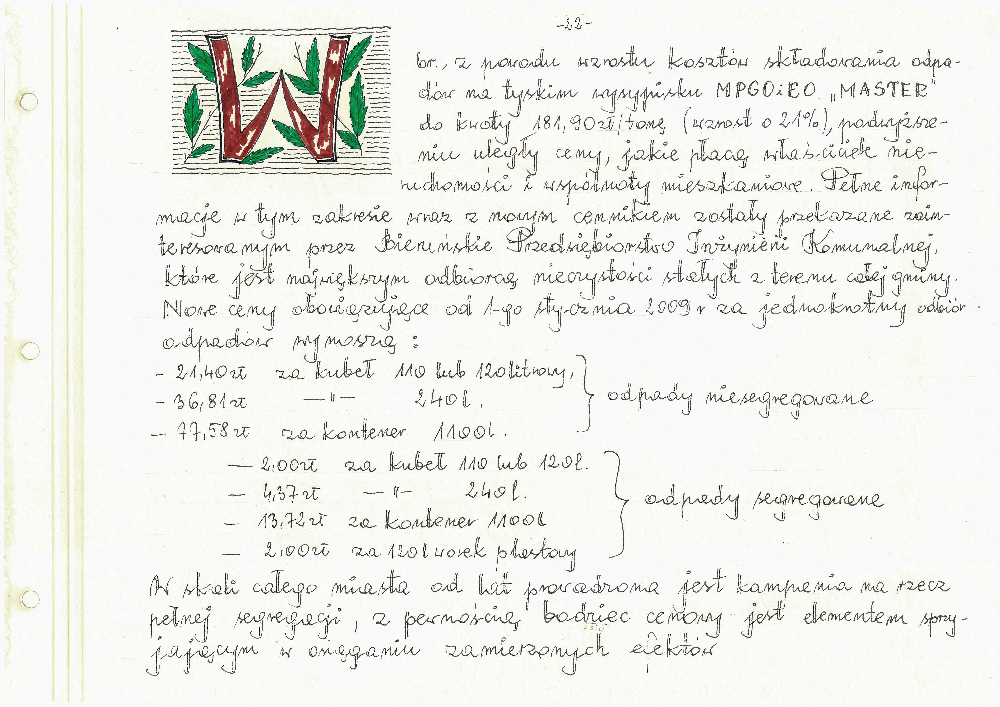 -22-
W br., z powodu wzrostu kosztów składowania odpa-
dów na tyskim wysypisku MPGOiEO „MASTER"
do kwoty 181,90zł/tonę (wzrost o 21%), podwyższe-
niu uległy ceny, jakie płacą właściciele nie-
ruchomości i wspólnoty mieszkaniowe. Pełne infor-
macje w tym zakresie wraz z nowym cennikiem zostały przekazane zain-
teresowanym przez Bieruńskie Przedsiębiorstwo Inżynierii Komunalnej,
które jest największym odbiorcą nieczystości stałych z terenu całej gminy.
Nowe ceny obowiązujące od 1-go stycznia 2009 r za jednokrotny odbiór
odpadów wynoszą :
- 21,40zł za kubeł 110 lub 120litrowy,
- 36,81zł —"— 240l. odpady niesegregowane
- 77,58zł za kontener 1100l.
- 2,00zł za kubeł 110 lub 120l.
- 4,37zł —"— 240l. odpady segregowane
- 13,72zł za kontener 1100l
- 2,00zł za 120l worek plastowy
W skali całego miasta od lat prowadzona jest kampania na rzecz
pełnej segregacji, z pewnością bodziec cenowy jest elementem sprzy-
jającym w osąganiu zamierzonych efektów